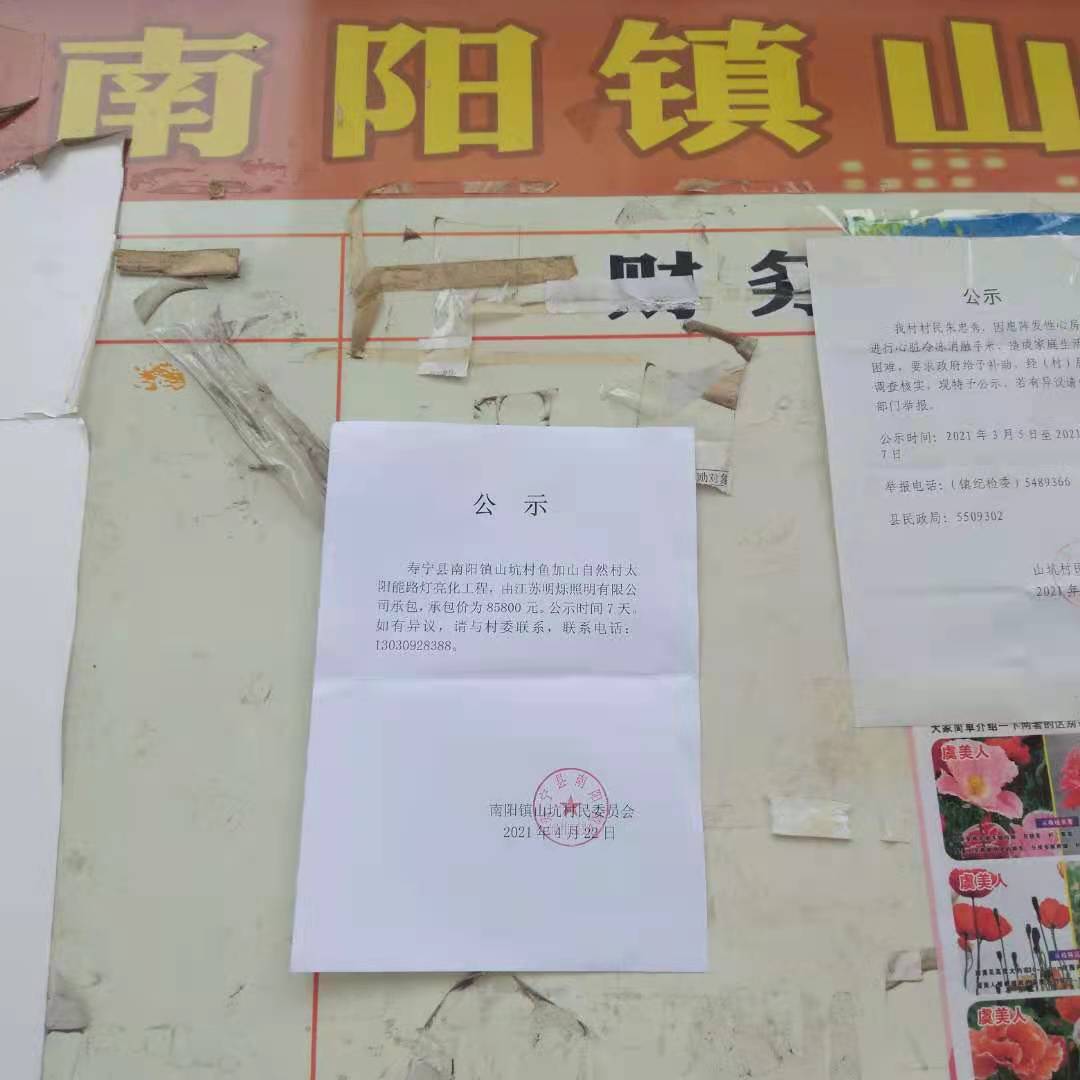 南阳镇山
财务
公示
我村村民朱忠秀,因患阵发性心房
进行心脏冷冻消融手术,造成家庭生活
困难,要求政府给予补助。经(村)居
调查核实,现特予公示,若有异议请
部门举报。
公示时间:2021年3月5日至2021
7日
举报电话:(镇纪检委)5489366
县民政局:5509302
山坑村民
2021年
公 示
寿宁县南阳镇山坑村鱼加山自然村太
阳能路灯亮化工程,由江苏明烁照明有限公
司承包,承包价为85800元。公示时间7天。
如有异议,请与村委联系,联系电话:
13030928388。
南阳镇山坑村民委员会
2021年4月22日
大家简单介绍一下两者的区别
虞美人
虞美人
虞美人